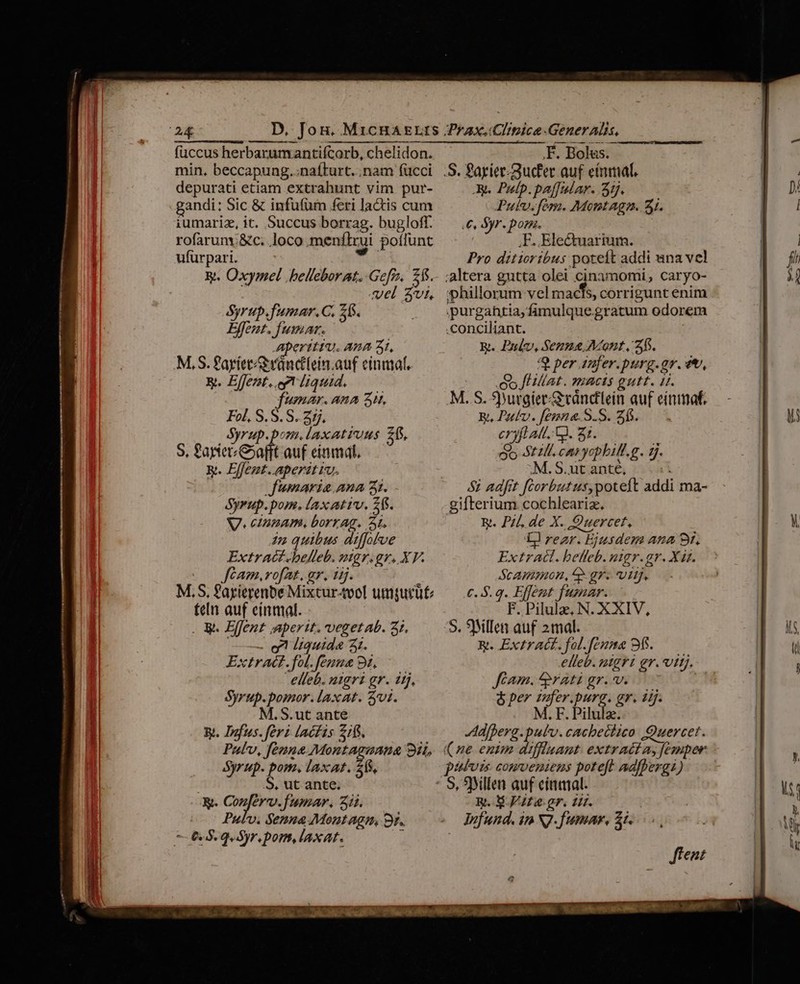 24 D. Joh. Michaelis Prax. Clinica Generalis.
ſuccus herbarum antiſcorb, chelidon.
min. beccapung. naſturt. nam ſucci
depurati etiam extrahunt vim pur-
gandi: Sic & infuſum ſeri lactis cum
iumariæ, it. Succus borrag. bugloſſ.
roſarum &c. loco menſtrui poſſunt
uſurpari.
℞. Oxymel helleborat. Geſn. ℥ß.
vel ʒvi,
Syrup. fumar. C. ℥ß.
Eſſent. fumar.
aperitiv. ana ʒi,
M. S. Laxier-Tränctlein auf einmal.
℞. Eſſent. liquid.
fumar. ana ʒii,
Fol. S. S. S. ʒij.
Syrup. pom. laxativus ℥ß,
S. Laxier-Safft auf einmal.
℞. Eſſent. aperitiv.
fumaria ana ʒi.
Syrup. pom. laxativ. ℥ß.
▽. cinnam. borrag. ℥i.
in quibus diſſolve
Extract. helleb. nigr. gr. XV.
ſcam. roſat. gr. iij.
M. S. Laxierende Mixtur wol umzurüt-
teln auf einmal.
℞. Eſſent aperit. vegetab. ʒi.
— liquida ʒi.
Extract. fol. ſenna ℈i.
elleb. nigri gr. iij.
Syrup. pomor. laxat. ʒvi.
M. S. ut ante
℞. Infus. ſeri lactis ℥iß.
Pulv. ſenna Montagnana ℈ii,
Syrup. pom. laxat. ℥ß,
S. ut ante.
℞. Conſerv. fumar. ʒii.
Pulv. Senna Montagn. ℈i.
C. S. q. Syr. pom, laxat.
F. Bolus.
S. Laxier-Zucker auf einmal.
℞. Pulp. paſſular. ʒij.
Pulv. ſem. Montagn. ʒi.
C. Syr. pom.
F. Electuarium.
Pro ditioribus poteſt addi una vel
altera gutta olei cinamomi, caryo-
phillorum vel macis, corrigunt enim
purgantia, ſimulque gratum odorem
conciliant.
℞. Pulv. Senna Mont. ʒß.
☿ per inſer. purg. gr. xv,
ſtillat. macis gutt. ii.
M. S. Purgier-Tränctlein auf einmal.
℞. Pulv. ſenna S. S. ʒß.
cryſtall. ʒi.
Still. caryophill. g. ij.
M. S. ut ante.
Si adſit ſcorbutus, poteſt addi ma-
giſterium cochleariæ.
℞. Pil. de X. Quercet.
rear. Ejusdem ana ℈i,
Extract. helleb. nigr. gr. Xii.
Scammon, gr. viij.
c. S. q. Eſſent fumar.
F. Pilulæ. N. XXIV,
S. Pillen auf 2mal.
℞. Extract. fol. ſenna ℈ß.
elleb. nigri gr. viij.
ſcam. grati gr. v.
per inſer. purg. gr. iij.
M. F. Pilulæ.
Adſperg. pulv. cachectico Quercet.
(ne enim diffluant extracta, ſemper
pulvis conveniens poteſt adſpergi)
S, Pillen auf einmal.
℞. ☿ Vitæ gr. iii.
Infund. in ▽. fumar, ℥i.
ſtent